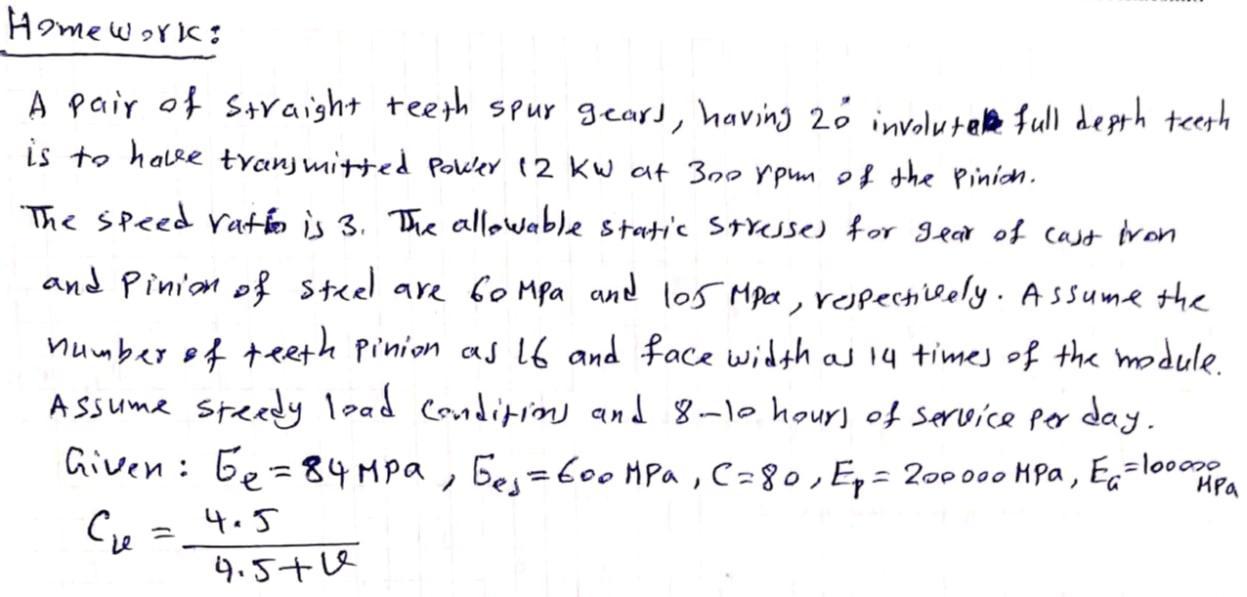 Homework:
A pair of straight teeth spur gears, having 20° involute full depth teeth
is to have transmitted power 12 kW at 300 rpm of the pinion.
The speed ratio is 3. The allowable static stresses for gear of cast iron
and pinion of steel are 60 MPa and 105 MPa, respectively. Assume the
number of teeth pinion as 16 and face width as 14 times of the module.
Assume steady load conditions and 8-10 hours of service per day.
Given: σe = 84 MPa, σes = 600 MPa, C = 80, Ep = 200000 MPa, EG = 100000 MPa
Cv = 4.5
4.5 + v